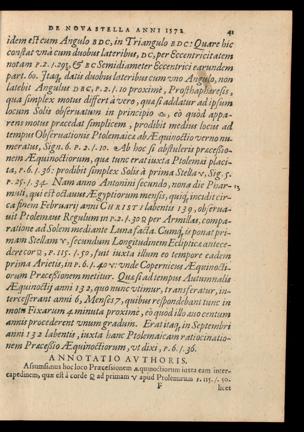 DE NOVA STELLA ANNI 1572. 41
idem est cum Angulo BDC, in Triangulo BDC: Quare hic
constat unà cum duobus lateribus, DC, per Eccentricitatem
notam P. 2. 1. 29⅔, & BC Semidiameter Eccentrici earundem
part. 60. Itaq, datis duobus lateribus cum uno Angulo, non
latebit Angulus DBC, P. 2. 1. 10 proximè, Prosthaphæresis,
qua simplex motus differt à vero, qua si addatur ad ipsum
locum Solis observatum in principio, eò quòd appa-
rens motus præcedat simplicem, prodibit medius locus ad
tempus Observationis Ptolemaicæ ab Æquinoctio verno nu-
meratus, Sign. 6. P. 2. 1. 10. Ab hoc si abstuleris præcessio-
nem Æquinoctiorum, quæ tunc erat iuxta Ptolemæi placi-
ta, P. 6. 1. 36: prodibit simplex Solis à prima Stella ♈, Sig. 5.
P. 25. 1. 34. Nam anno Antonini secundo, nona die Phar-
muti, qui est octavus Ægyptiorum mensis, quiq, incidit cir-
ca finem Februarij anni CHRISTI labentis 139, observa-
vit Ptolemæus Regulum in P. 2. 1. 30 ♌ per Armillas, compa-
ratione ad Solem mediante Luna facta. Cumq, is ponat pri-
mam Stellam ♈, secundum Longitudinem Eclipticæ antece-
dere cor ♌, P. 115. 1. 50, fuit iuxta illum eo tempore eadem
prima Arietis, in P. 6. 1. 40 ♈: unde Copernicus Æquinocti-
orum Præcessionem metitur. Quasi ad tempus Autumnalis
Æquinoctij anni 132, quo nunc utimur, transferatur, in-
tercesserant anni 6, Menses 7, quibus respondebant tunc in
motu Fixarum 4 minuta proximè, eò quòd illo ævo centum
annis procederent unum gradum. Erat itaq, in Septembri
anni 132 labentis, iuxta hanc Ptolemaicam ratiocinatio-
nem Præcessio Æquinoctiorum, ut dixi, P. 6. 1. 36.
ANNOTATIO AUTHORIS.
Assumsimus hoc loco Præcessionem æquinoctiorum iuxta eam inter-
capedinem, quæ est à corde ♌ ad primam ♈ apud Ptolemæum P. 115. 1. 50.
F
licet